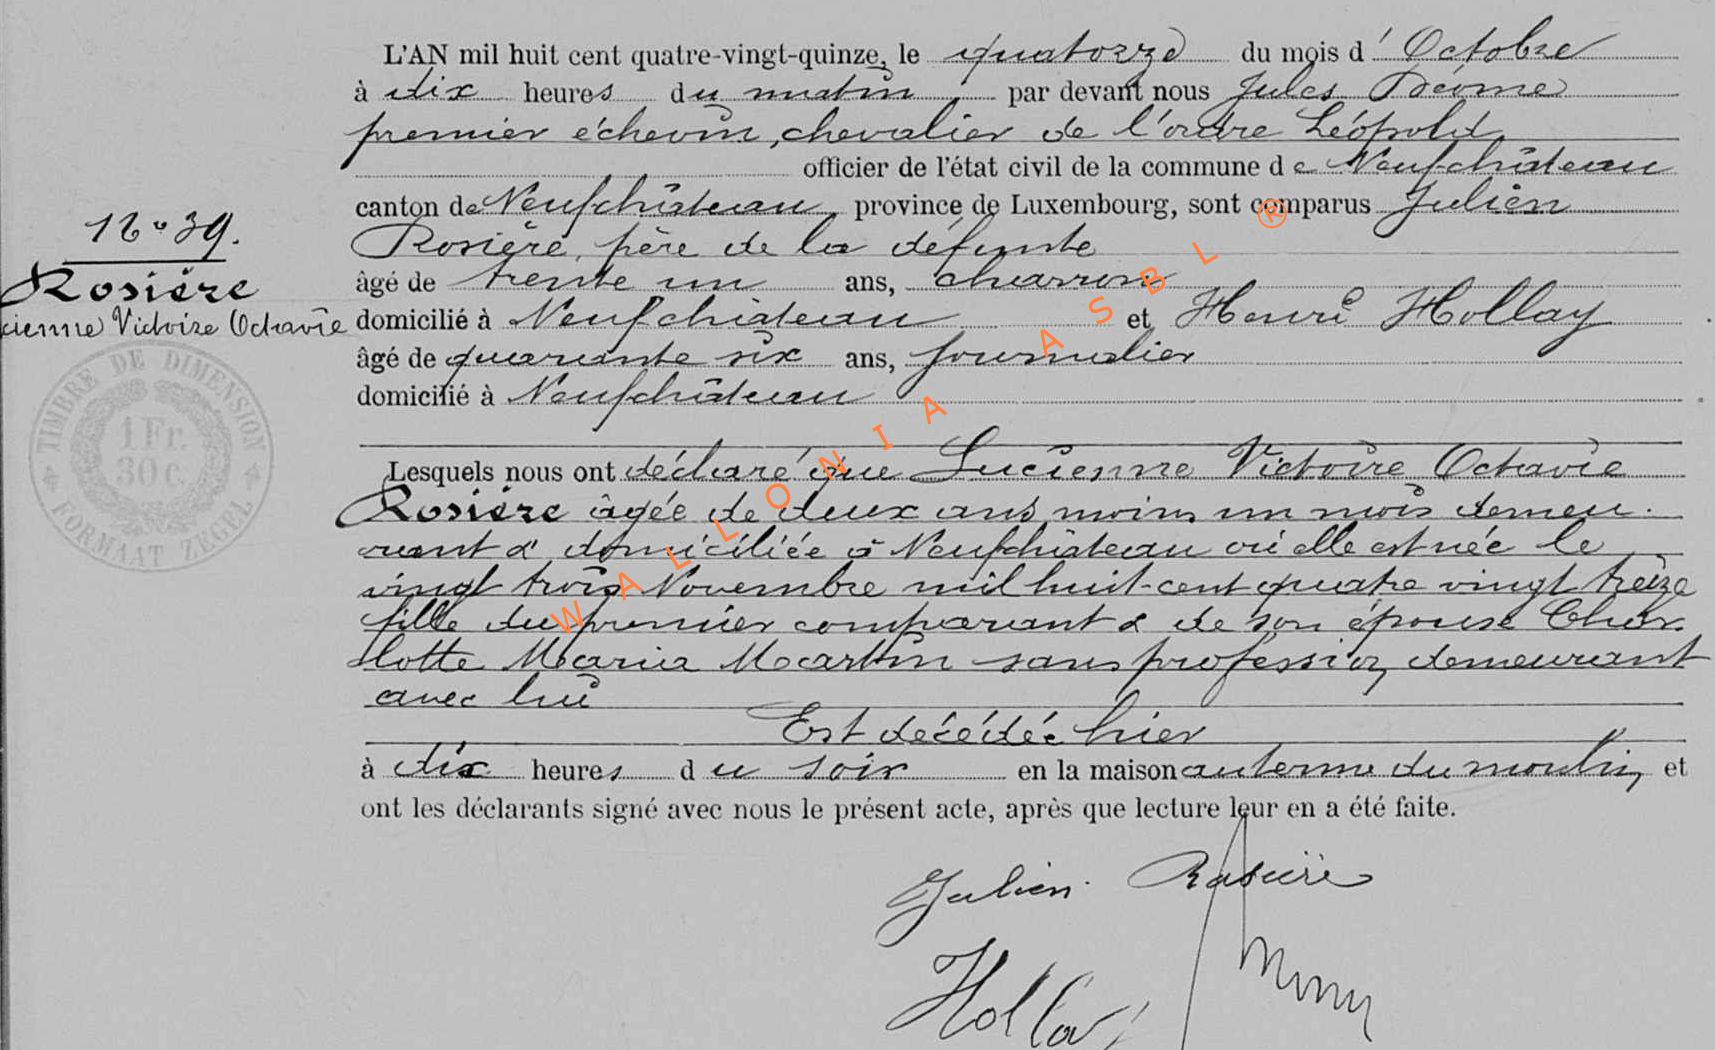 L'AN mil huit cent quatre-vingt-quinze, le quatorze du mois d'Octobre
à dix heures du matin par devant nous Jules
premier échevin, chevalier de l'ordre Léopold,
officier de l'état civil de la commune de Neufchâteau
canton de Neufchâteau, province de Luxembourg, sont comparus Julien
Rosière, père de la défunte
âgé de trente un ans, charron
domicilié à Neufchâteau et Henri Hollay
âgé de quarante six ans, journalier
domicilié à Neufchâteau
Lesquels nous ont déclaré que Lucienne Victoire Octavie
Rosière âgée de deux ans moins un mois demeu-
rant & domiciliée à Neufchâteau où elle est née le
vingt trois Novembre mil huit-cent quatre vingt treize
fille du premier comparant & de son épouse Char-
lotte Maria Martin sans profession, demeurant
avec lui
Est décédée hier
à dix heures du soir en la maison du moulin, et
ont les déclarants signé avec nous le présent acte, après que lecture leur en a été faite.
Julien Rosière
Hollay
N° 39.
Rosière
cienne Victoire Octavie
TIMBRE DE DIMENSION
1 Fr.
30 c.
FORMAAT ZEGEL
WALLONIA ASBL ®